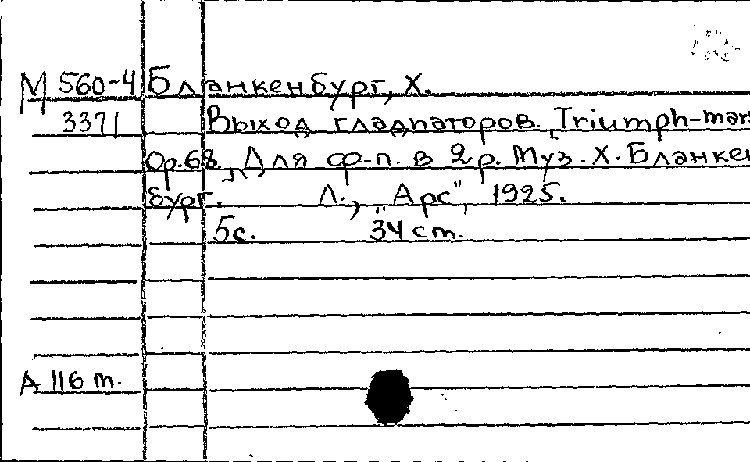 М 560-4 Бланкенбург, Х.
3371 Выход гладиаторов. Triumph-mar
Op.68. Для ф-п. в 2 р. Муз. Х. Бланкен
бург. Л., „Арс", 1925.
5с. 34 cm.
А 116 т.